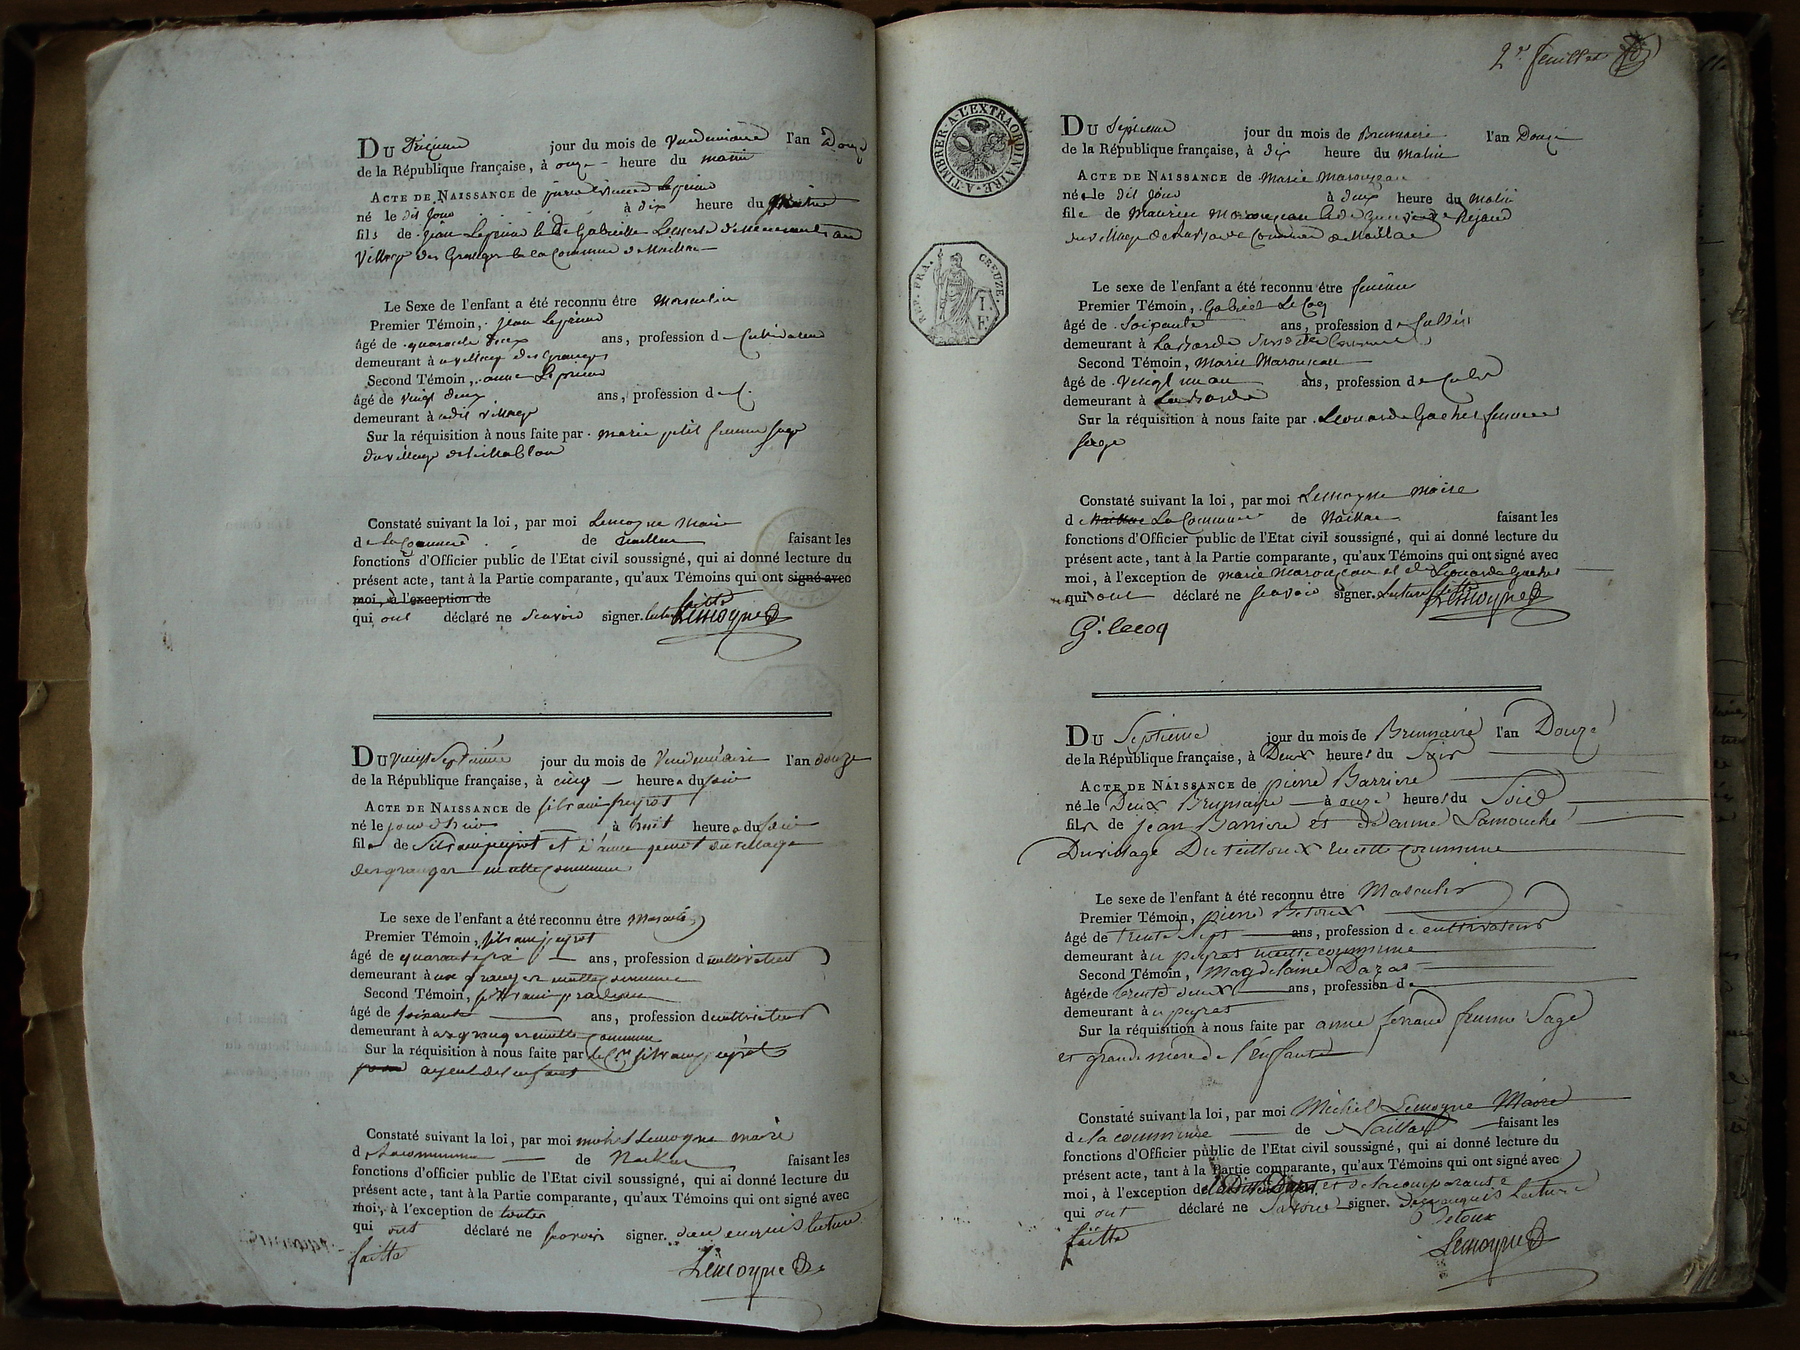 DU jour du mois de Vendémiaire l'an Douze
de la République française, à onze heure du matin
ACTE DE NAISSANCE de
né le dit jour à dix heure du
fils de Jean
Village des Granges de la Commune de Naillac
Le Sexe de l'enfant a été reconnu être Masculin
Premier Témoin, Jean
âgé de quarante deux ans, profession de Cultivateur
demeurant à village des Granges
Second Témoin, anne
âgé de vingt deux ans, profession de C.
demeurant à dit village
Sur la réquisition à nous faite par marie petit femme sage
du village de
Constaté suivant la loi, par moi Lemoyne Maire
de La Commune de Naillac faisant les
fonctions d'Officier public de l'Etat civil soussigné, qui ai donné lecture du
présent acte, tant à la Partie comparante, qu'aux Témoins qui ont signé avec
moi, à l'exception de
qui ont déclaré ne Scavoir signer. faitte
Lemoyne
DU vingt Septième jour du mois de Vendémiaire l'an douze
de la République française, à cinq heure du soir
ACTE DE NAISSANCE de silvain peyrot
né le jour d'hier à huit heure du soir
fils de Silvain peyrot et d'anne du village
des granges en cette Commune
Le sexe de l'enfant a été reconnu être Masculin
Premier Témoin, silvain peyrot
âgé de quarante six ans, profession cultivateur
demeurant à aux granges en cette commune
Second Témoin, silvain
âgé de soixante ans, profession de cultivateur
demeurant à aux granges en cette Commune
Sur la réquisition à nous faite par le Cen silvain peyrot
ayeul de l'enfant
Constaté suivant la loi, par moi michel Lemoyne maire
de la commune de Naillac faisant les
fonctions d'officier public de l'Etat civil soussigné, qui ai donné lecture du
présent acte, tant à la Partie comparante, qu'aux Témoins qui ont signé avec
moi, à l'exception de toutes
qui ont déclaré ne scavoir signer. de ce enquis lecture
faitte
Lemoyne
2e feuillet
TIMBRER-A-L'EXTRAORDINAIRE
REP. FRA. CREUZE
DU Septieme jour du mois de Brumaire l'an Douze
de la République française, à dix heure du Matin
ACTE DE NAISSANCE de Marie Marouzeau
née le dit Jour à deux heure du Matin
file de Maurice Marouzeau
du village de Commune de Naillac
Le sexe de l'enfant a été reconnu être femime
Premier Témoin, Gabriel Le Coq
âgé de Soixante ans, profession de
demeurant à Laborde Commune
Second Témoin, Marie Marouzeau
âgé de vingt un an ans, profession de Cult
demeurant à Laborde
Sur la réquisition à nous faite par Leonarde Gachet femme
sage
Constaté suivant la loi, par moi Lemoyne Maire
de La Commune de Naillac faisant les
fonctions d'Officier public de l'Etat civil soussigné, qui ai donné lecture du
présent acte, tant à la Partie comparante, qu'aux Témoins qui ont signé avec
moi, à l'exception de marie Marouzeau et de Leonarde Gachet
qui ont déclaré ne scavoir signer. Lecture faitte
Lemoyne
G. Lecoq
DU Septieme jour du mois de Brumaire l'an Douze
de la République française, à Deux heures du Soir
ACTE DE NAISSANCE de pierre Barriere
né le Deux Brumaire à onze heures du Soir
fils de Jean Barriere et de anne Lamouche
Du village Du teilloux En cette Commune
Le sexe de l'enfant à été reconnu être Masculin
Premier Témoin, pierre Betoux
âgé de trente Sept ans, profession de cultivateur
demeurant à peyrat en cette commune
Second Témoin, Magdelaine Daras
âgée de trente deux ans, profession de
demeurant à peyrat
Sur la réquisition à nous faite par anne ferraud femme Sage
et grande mere de l'enfant
Constaté suivant la loi, par moi Michel Lemoyne Maire
de la commune de Naillac faisant les
fonctions d'Officier public de l'Etat civil soussigné, qui ai donné lecture du
présent acte, tant à la Partie comparante, qu'aux Témoins qui ont signé avec
moi, à l'exception de et de la comparante
qui ont déclaré ne Savoir signer. de ce enquis lecture
faitte
Betoux
Lemoyne